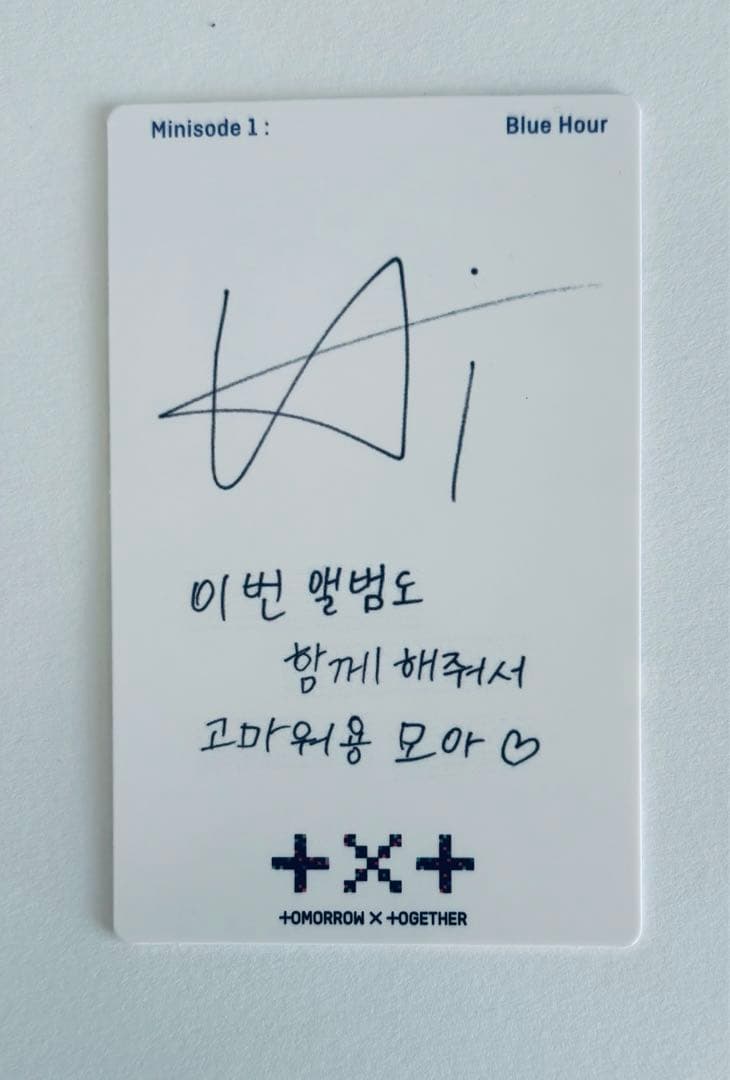 Minisode 1 : Blue Hour
이번 앨범도
함께 해줘서
고마워용 모아 ♡
+x+
+OMORROW X +OGETHER